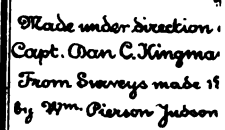 Made under direction
Capt. Dan C. Kingma
From Surveys made 19
by Wm. Pierson Judson